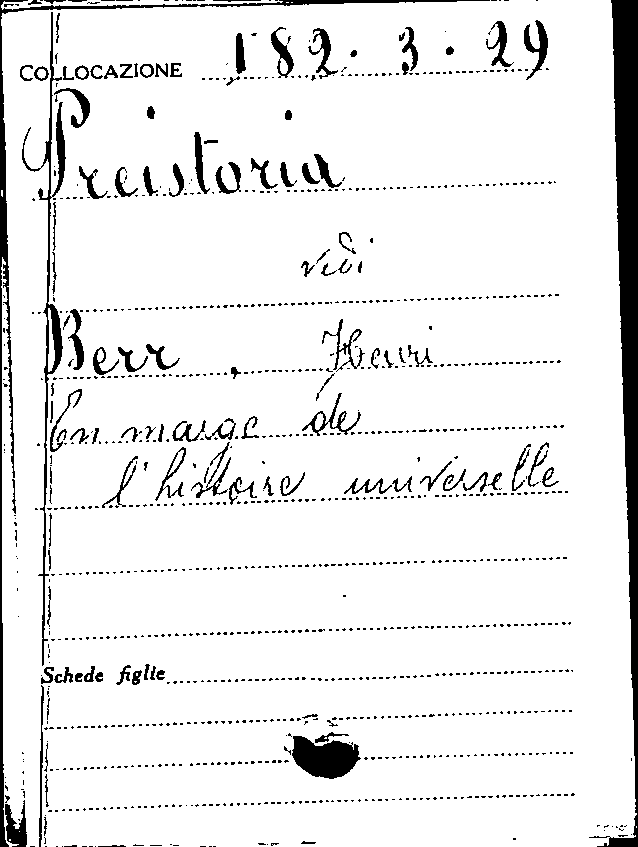 COLLOCAZIONE 182.3.29
Preistoria
vedi
Berr, Henri
En marge de
l'histoire universelle
Schede figlie